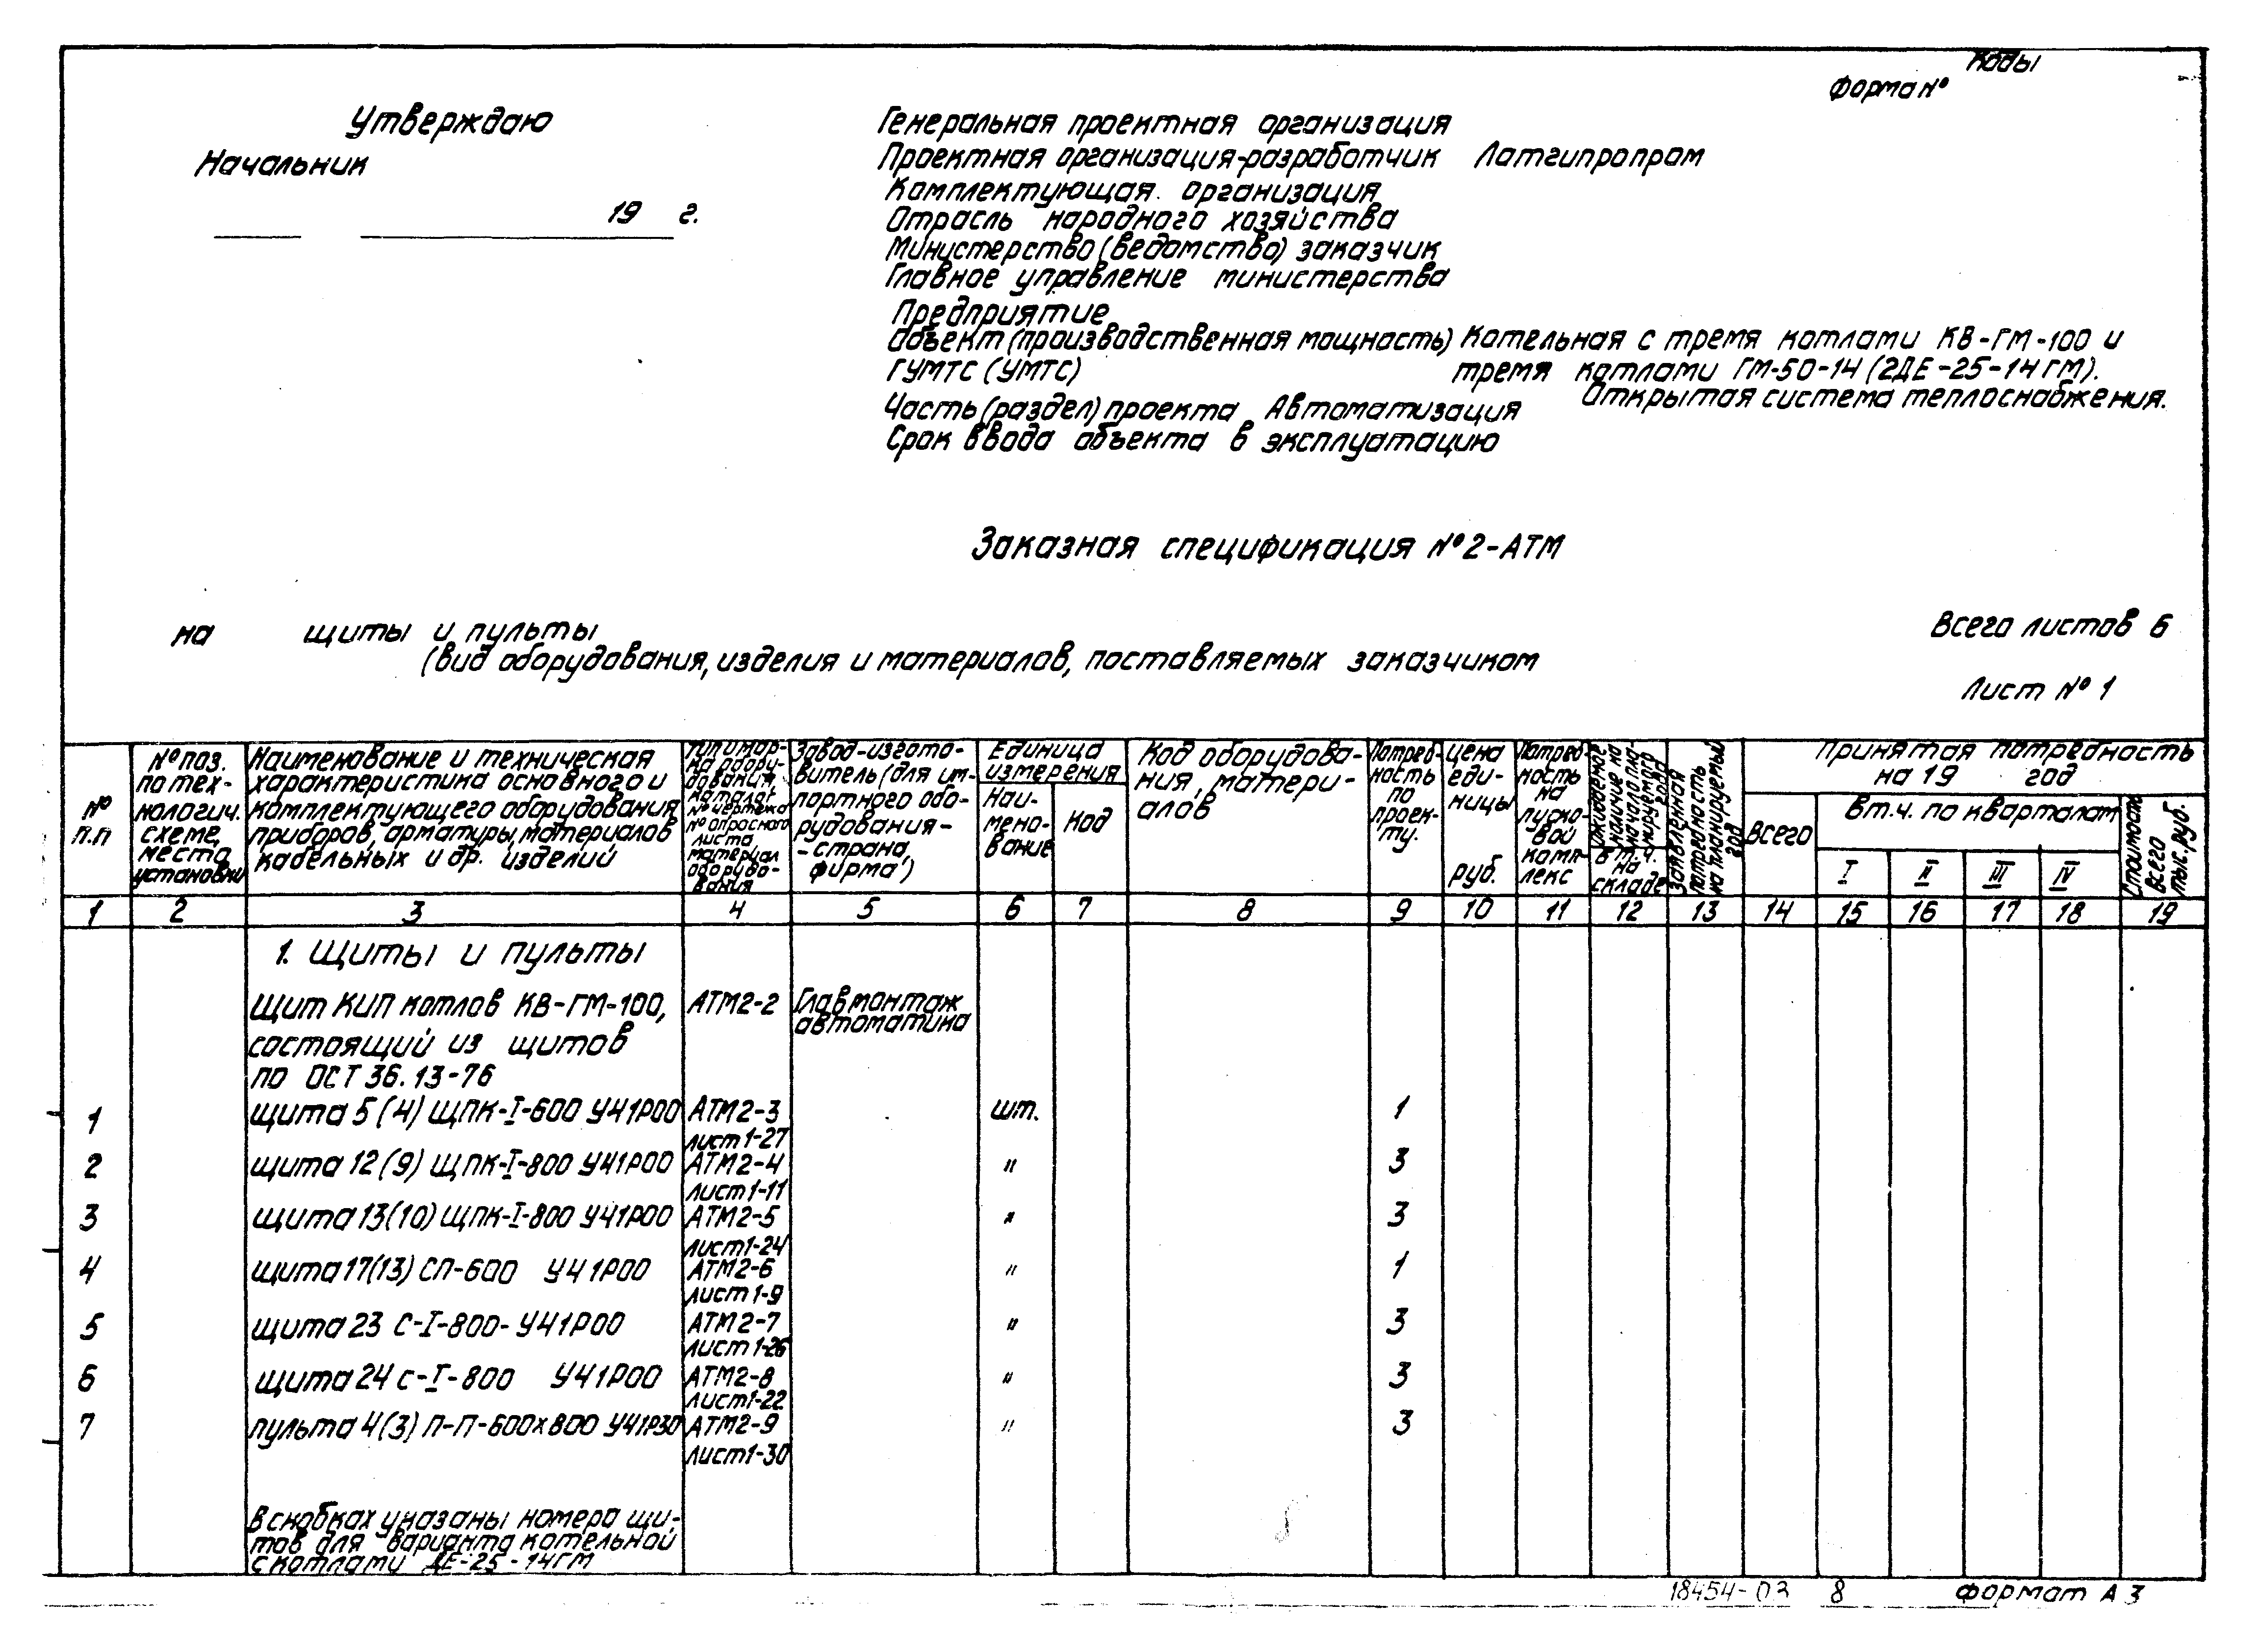 Коды
Форма №
Утверждаю
Начальник
19 г.
Генеральная проектная организация
Проектная организация-разработчик Латгипропром
Комплектующая организация
Отрасль народного хозяйства
Министерство (ведомство) заказчик
Главное управление министерства
Предприятие
Объект (производственная мощность) Котельная с тремя котлами КВ-ГМ-100 и
ГУМТС (УМТС) тремя котлами ГМ-50-14 (2ДЕ-25-14ГМ).
Открытая система теплоснабжения.
Часть (раздел) проекта Автоматизация
Срок ввода объекта в эксплуатацию
Заказная спецификация №2-АТМ
на щиты и пульты
(вид оборудования, изделия и материалов, поставляемых заказчиком
Всего листов 6
Лист № 1
№
п.п
№ поз.
по тех-
нологич.
схеме,
места
установки
Наименование и техническая
характеристика основного и
комплектующего оборудования,
приборов, арматуры, материалов
кабельных и др. изделий
Тип и мар-
ка обору-
дования,
каталог,
№ чертежа
№ опросного
листа
материал
оборудо-
вания
Завод-изгото-
витель (для им-
портного обо-
рудования-
-страна,
фирма)
Единица
измерения
Наи-
мено-
вание
Код
Код оборудова-
ния, матери-
алов
Потреб-
ность
по
проек-
ту.
Цена
еди-
ницы
руб.
Потреб-
ность
на
пуско-
вой
комп-
лекс
Ожидаемое
наличие на
начало пла-
нируемого
года
в т.ч.
на
складе
Заявленная
потребность
на планируемый
год
Принятая потребность
на 19 год
Всего
В т.ч. по кварталам
I II III IV
Стоимость
всего
тыс. руб.
1 2 3 4 5 6 7 8 9 10 11 12 13 14 15 16 17 18 19
1. Щиты и пульты
Щит КИП котлов КВ-ГМ-100, АТМ2-2 Главмонтаж
автоматика
состоящий из щитов
по ОСТ 36.13-76
1 щита 5 (4) ЩПК-I-600 У41Р00 АТМ2-3 шт. 1
лист 1-27
2 щита 12 (9) ЩПК-I-800 У41Р00 АТМ2-4 " 3
лист 1-11
3 щита 13(10) ЩПК-I-800 У41Р00 АТМ2-5 " 3
лист 1-24
4 щита 17(13) СП-600 У41Р00 АТМ2-6 " 1
лист 1-9
5 щита 23 С-I-800- У41Р00 АТМ2-7 " 3
лист 1-26
6 щита 24 С-I-800 У41Р00 АТМ2-8 " 3
лист 1-22
7 пульта 4(3) П-П-600х800 У41Р30 АТМ2-9 " 3
лист 1-30
В скобках указаны номера щи-
тов для варианта котельной
с котлами ДЕ-25-14ГМ
18454-03 8 Формат А3